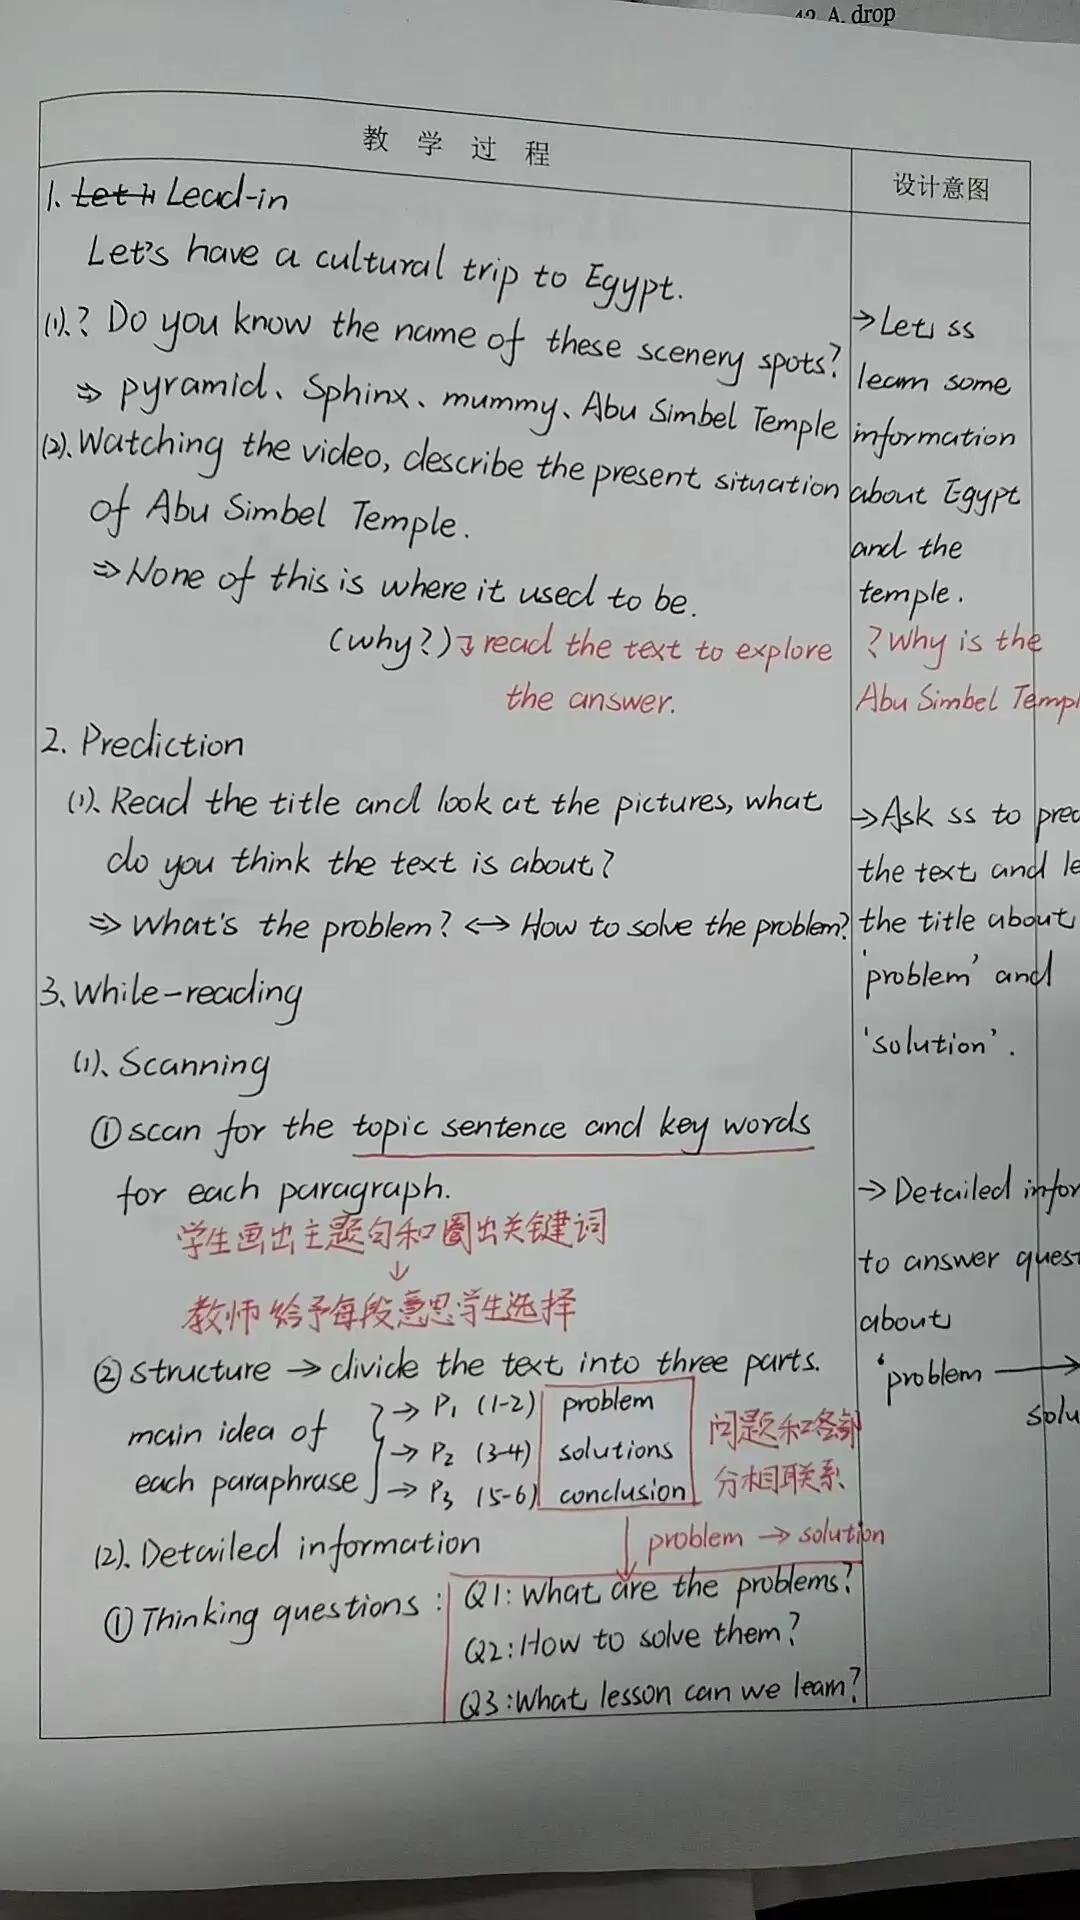 A. drop
教学过程
设计意图
1. Lead-in
Let's have a cultural trip to Egypt.
(1).? Do you know the name of these scenery spots?
⇒ pyramid、Sphinx、mummy、Abu Simbel Temple
(2). Watching the video, describe the present situation
of Abu Simbel Temple.
⇒ None of this is where it used to be.
(why?) read the text to explore
the answer.
2. Prediction
(1). Read the title and look at the pictures, what
do you think the text is about?
⇒ What's the problem? ↔ How to solve the problem?
3. While-reading
(1). Scanning
① scan for the topic sentence and key words
for each paragraph.
学生画出主题句和圈出关键词
↓
教师给予每段意思学生选择
② structure → divide the text into three parts.
main idea of
each paraphrase
→ P1 (1-2) problem
→ P2 (3-4) solutions
→ P3 (5-6) conclusion
问题和各部
分相联系
problem → solution
(2). Detailed information
① Thinking questions:
Q1: What are the problems?
Q2: How to solve them?
Q3: What lesson can we learn?
→ Let ss
learn some
information
about Egypt
and the
temple.
? Why is the
Abu Simbel Templ
→ Ask ss to pred
the text and le
the title about
'problem' and
'solution'.
→ Detailed infor
to answer quest
about
'problem →
solu